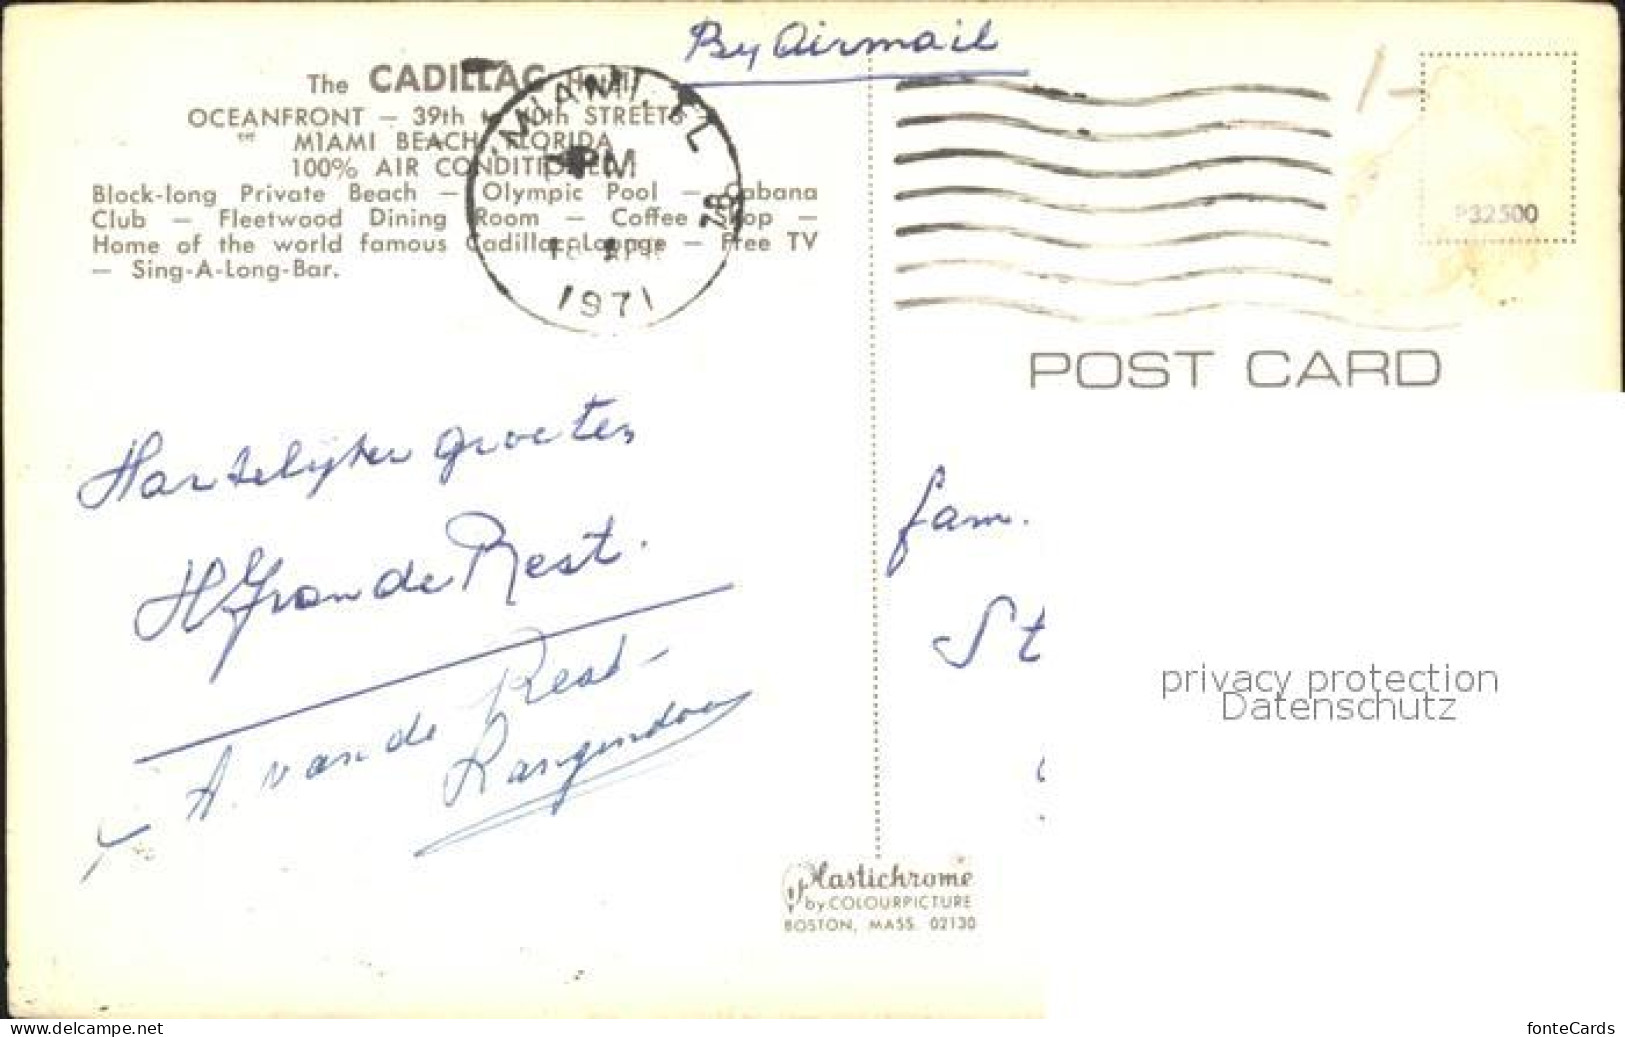 By Airmail
The CADILLAC Hotel
OCEANFRONT — 39th to 40th STREETS
MIAMI BEACH, FLORIDA
100% AIR CONDITIONED
Block-long Private Beach — Olympic Pool — Cabana
Club — Fleetwood Dining Room — Coffee Shop —
Home of the world famous Cadillac Lounge — Free TV
— Sing-A-Long-Bar.
MIAMI, FL
PM
1971
1-
P32500
POST CARD
Hartelijke groeten
H van de Rest.
A. van de Rest-
fam.
St
privacy protection
Datenschutz
Plastichrome
by COLOURPICTURE
BOSTON, MASS. 02130
www.delcampe.net
fonteCards